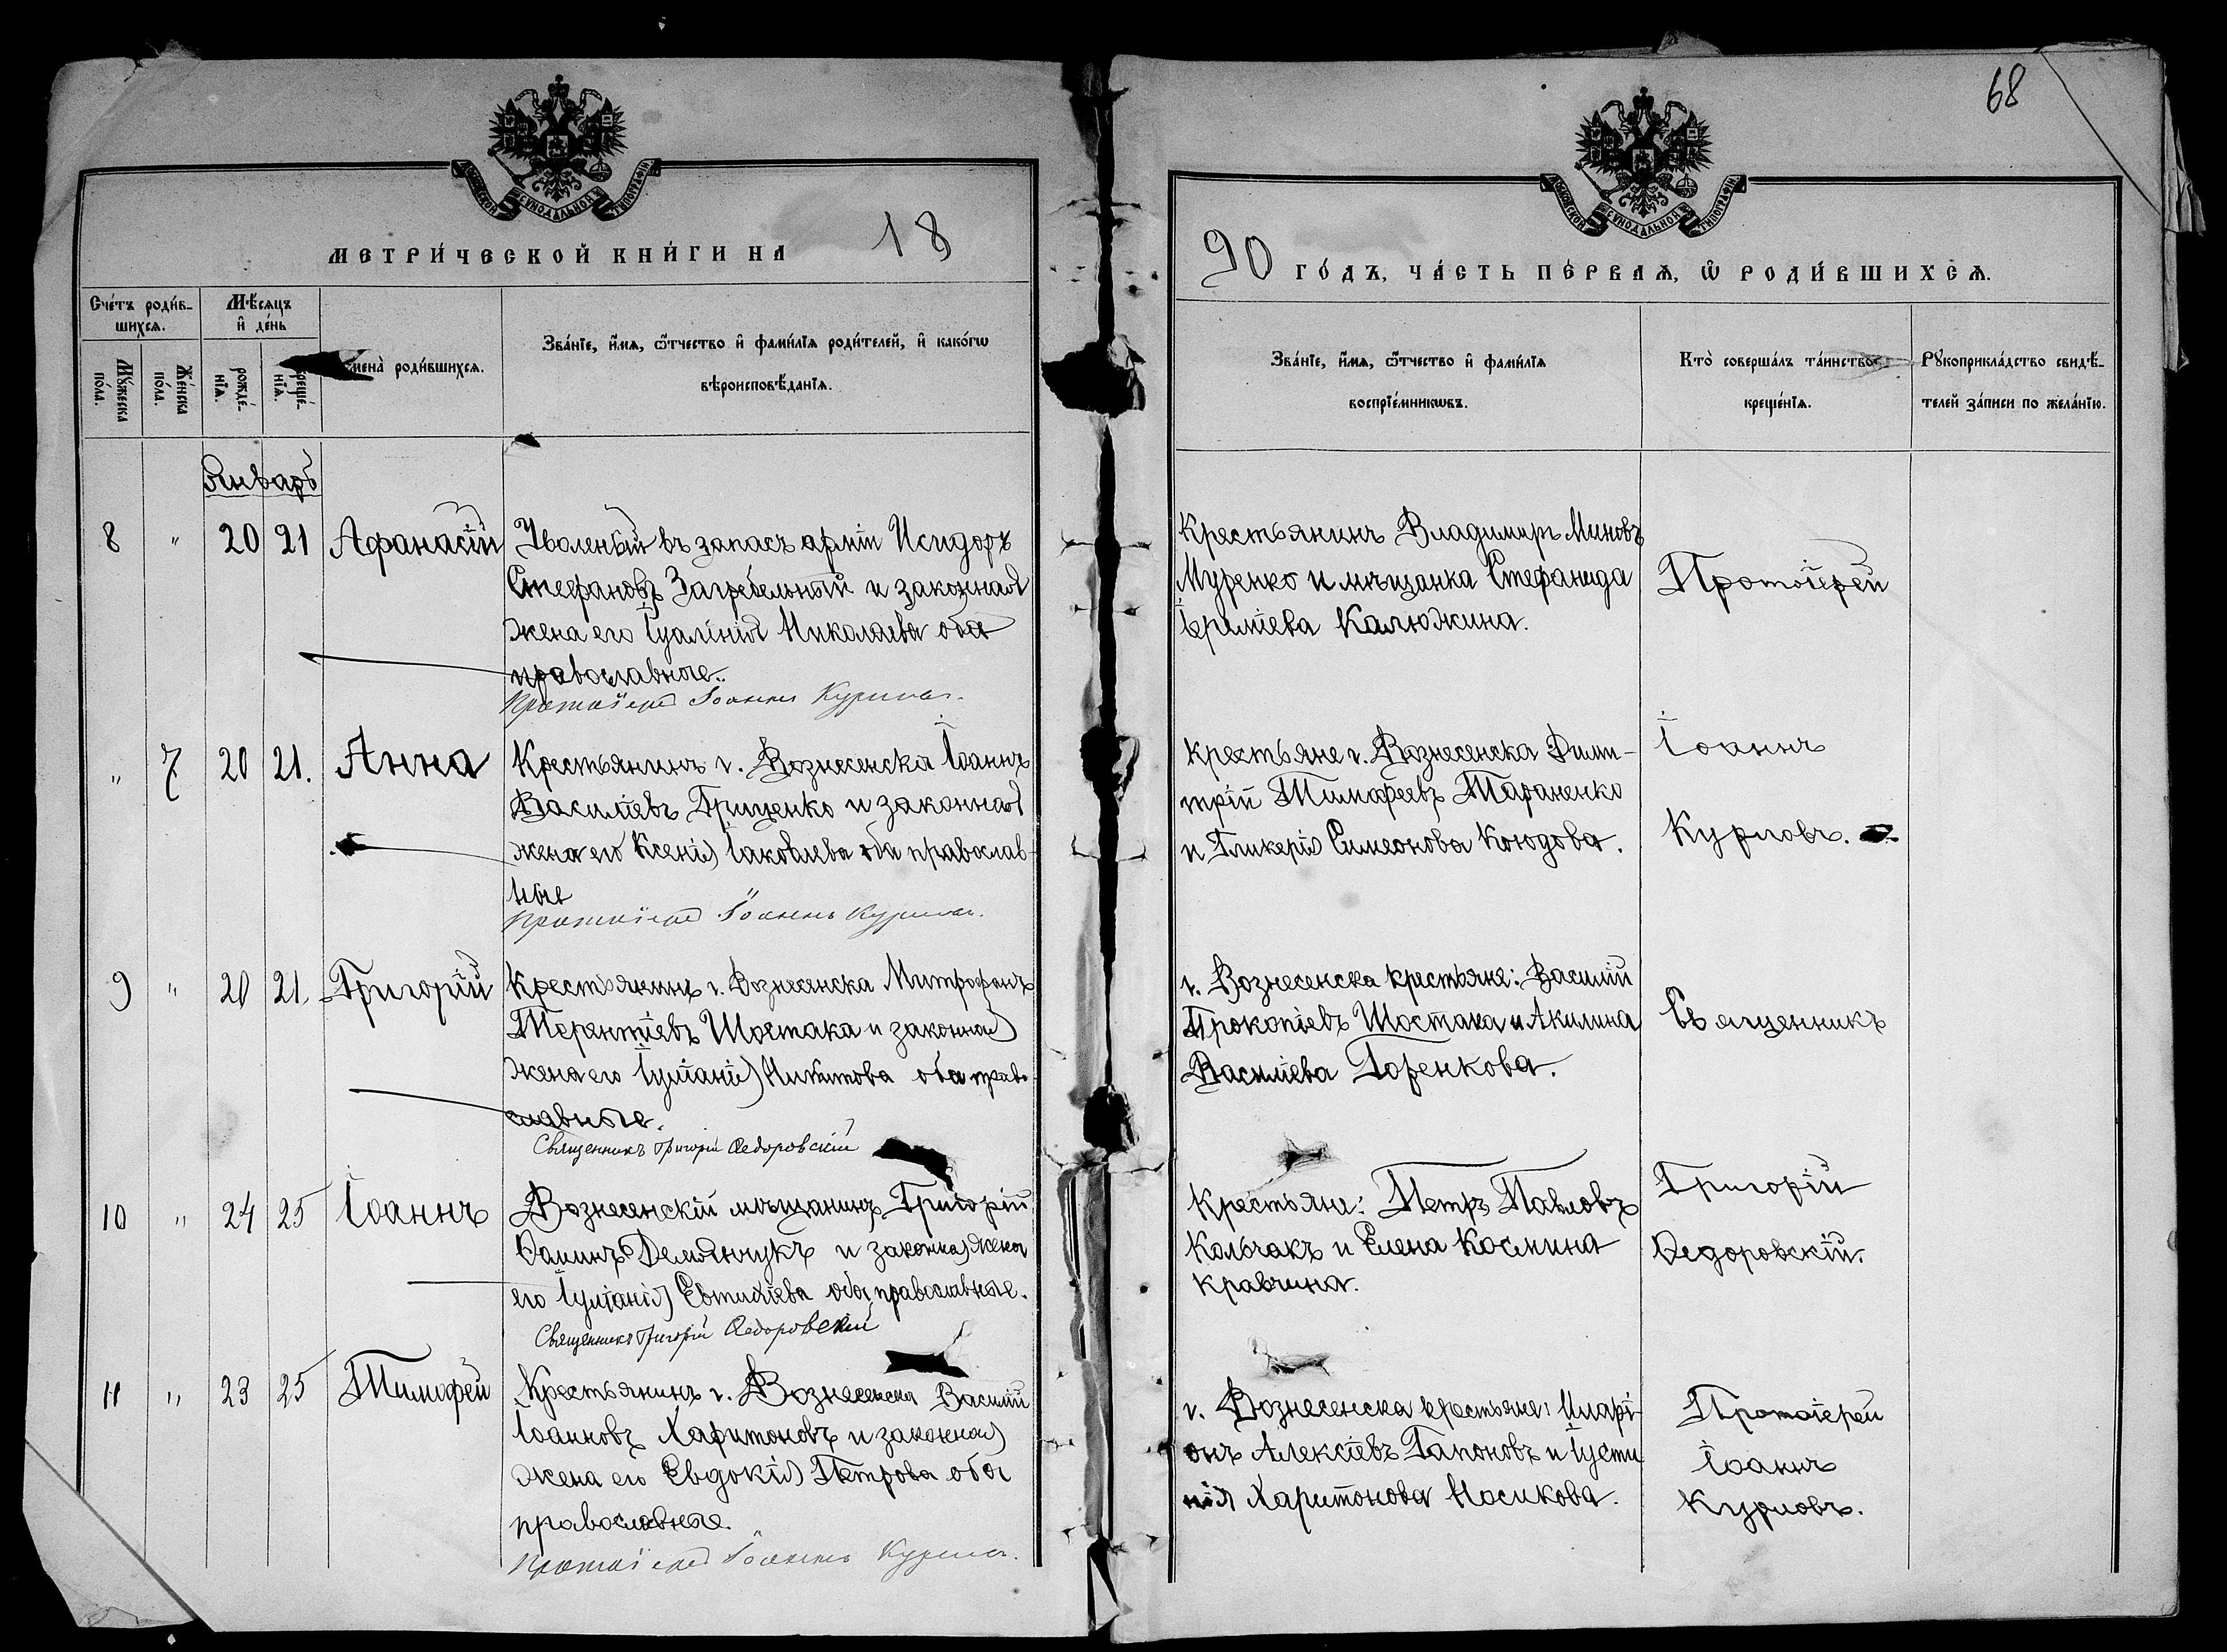 68
МОСКОВСКОЙ СѴНОДАЛЬНОЙ ТИПОГРАФІИ
МОСКОВСКОЙ СѴНОДАЛЬНОЙ ТИПОГРАФІИ
МЕТРИ́ЧЕСКОЙ КНИ́ГИ НА 18
90 ГО́ДЪ, ЧА́СТЬ ПЕ́РВАѦ, Ѿ РОДИ́ВШИХСѦ.
Сче́тъ роди́в-
шихсѧ.
Мѣ́сѧцъ
и҆ де́нь
Мꙋ́жеска
по́ла.
Же́нска
по́ла.
рожде́-
нїѧ.
креще́-
нїѧ.
Имена̀ роди́вшихсѧ.
Зва́нїе, и҆́мѧ, ѻ҆́тчество и҆ фами́лїѧ роди́телей, и҆ како́гѡ
вѣроисповѣ́данїѧ.
Зва́нїе, и҆́мѧ, ѻ҆́тчество и҆ фами́лїѧ
воспрїе́мникѡвъ.
Кто̀ соверша́лъ та́инство
креще́нїѧ.
Рꙋкоприкла́дство свидѣ́-
телей за́писи по жела́нїю.
Январь
8 " 20 21 Афанасій
Уволеный въ запасъ арміи Исидоръ
Стефановъ Загребельный и законная
жена его Іуліанія Николаева оба
православные.
Протоіерей Іоаннъ Курловъ.
Крестьянинъ Владимиръ Миновъ
Муренко и мѣщанка Стефанида
Іереміева Калюжина.
Протоіерей
" 7 20 21. Анна
Крестьянинъ г. Вознесенска Іоаннъ
Василіевъ Гриценко и законная
жена его Ксенія Іаковлева оба православ-
ные
Протоіерей Іоаннъ Курловъ.
Крестьяне г. Вознесенска Дими-
трій Тимофеевъ Тараненко
и Гликерія Симеонова Коюдова.
Іоаннъ
Курловъ.
9 " 20 21. Григорій
Крестьянинъ г. Вознесенска Митрофанъ
Терентіевъ Шостака и законная
жена его Іуліанія Никитова оба право-
славные.
Священникъ Григорій Ѳедоровскій
г. Вознесенска крестьяне: Василій
Прокопіевъ Шостака и Акилина
Василіева Горенкова.
Священникъ
10 " 24 25 Іоаннъ
Вознесенскій мѣщанинъ Григорій
Ѳоминъ Демьянчукъ и законная жена
его Іуліанія Евтихіева оба православные.
Священникъ Григорій Ѳедоровскій
Крестьяне: Петръ Павловъ
Кольчакъ и Елена Космина
Кравчина.
Григорій
Ѳедоровскій.
11 " 23 25 Тимофей
Крестьянинъ г. Вознесенска Василій
Іоанновъ Харитоновъ и законная
жена его Евдокія Петрова оба
православные.
Протоіерей Іоаннъ Курловъ.
г. Вознесенска крестьяне: Иларі-
онъ Алексіевъ Гапоновъ и Іусти
нія Харитонова Носикова.
Протоіерей
Іоаннъ
Курловъ.